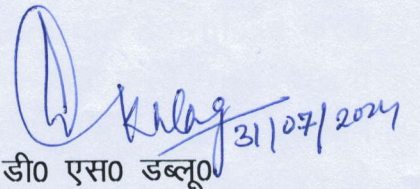 31/07/2024
डी0 एस0 डब्लू0